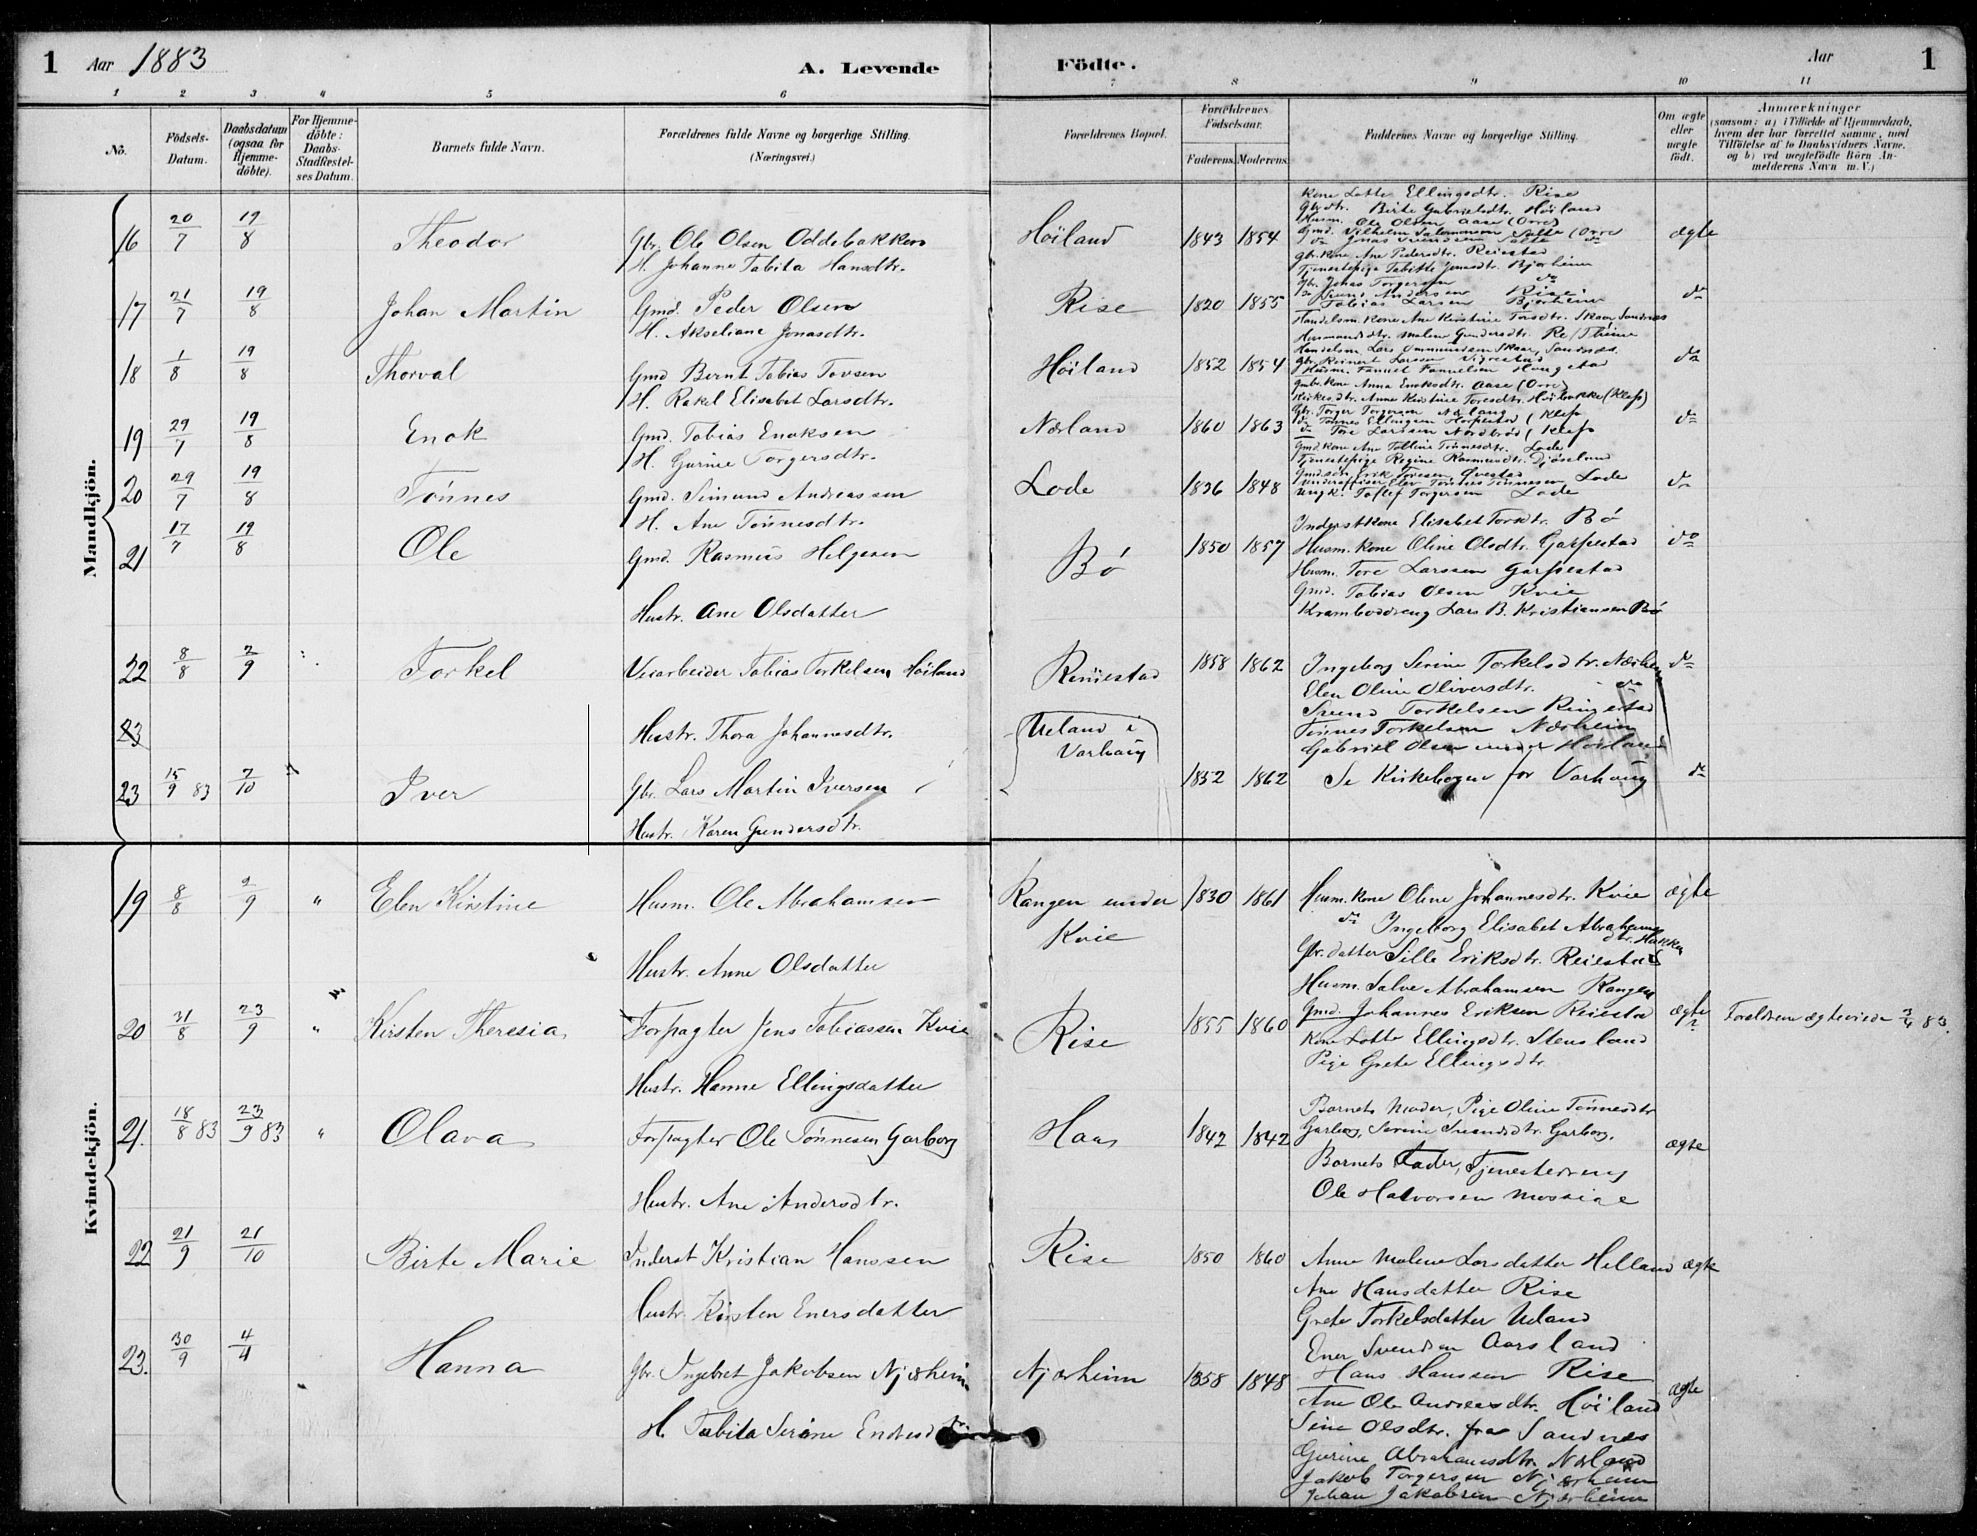 1 Aar 1883 A. Levende Födte. Aar 1
1 2 3 4 5 6 7 8 9 10 11
No.
Födsels-Datum.
Daabsdatum (ogsaa for Hjemme-döbte).
For Hjemme-döbte: Daabs-Stadfæstel-ses Datum.
Barnets fulde Navn.
Forældrenes fulde Navne og borgerlige Stilling.
(Næringsvei.)
Forældrenes Bopæl.
Forældrenes Födselsaar.
Faderens. Moderens.
Faddernes Navne og borgerlige Stilling.
Om ægte eller uægte födt.
Anmærkninger
(saasom: a) i Tilfælde af Hjemmedaab, hvem der har forrettet samme, med Tilföielse af to Daabsvidners Navne, og b) ved uægtefödte Börn Anmelderens Navn m.V.)
Mandkjön.
16 20/7 19/8 Theodor Gbr. Ole Olsen Oddebakken Höiland 1843 1854 ægte
H. Johanne Tabita Hansdtr.
Kone Lotte Ellingsdtr. Rise
Gbr.dtr. Birte Gabrielsdtr. Höiland
Husm. Ole Olsen Aase (Orre)
Gmd. Vilhelm Salomonsen Salte (Orre
do Jonas Svendsen Salte do
17 21/7 19/8 Johan Martin Gmd. Peder Olsen Rise 1820 1855 do
H. Akseliane Jonasdtr.
Gbr.kone Ane Pedersdtr. Reiestad
Tjenestepige Tabitte Jonasdtr. Bjorheim
Gbr. Jonas Torgersen do
do Svend Andersen Rise
Tobias Larsen Bjorheim
18 1/8 19/8 Thorval Gmd Bernt Tobias Tovsen Höiland 1852 1854 do
H. Rakel Elisabet Larsdtr.
Handelsm. Kone Ane Kirstine Torsdtr. Skaar, Sandnæs
Husmandsdtr. Malene Gundersdtr. Re/Thime
Handelsm. Lars Ommundsen Skaar, Sandnæs.
Gbr. Reinert Larssen Vigrestad
Husm. Fanuel Fanuelsen Haugstad
19 29/7 19/8 Enok Gmd. Tobias Enoksen Nærland 1860 1863 do
H. Gurine Torgersdtr.
Gmbr.kone Anna Enoksdtr. Aase (Orre)
Kirkes.dtr. Anne Kristine Toresdtr. (Klep)
Gbr. Torger Torgersen Nærland
do Tönnes Ellingsen (Klep
do Tore Larssen Nordbrød (Klep
20 29/7 19/8 Tönnes Gmd. Simund Andreassen Lode 1836 1848 do
H. Ane Tönnesdtr.
Gmd kone Ane Tolline Tönnesdtr. Lode
Tjenestepige Regine Rasmusdtr. Djöseland
Gmdsøn Erik Tovesen Øvestad
Underofficer Elev Tönnes Tönnesen Lode
Ungk. Tollef Torgersen Lode
21 17/7 19/8 Ole Gmd. Rasmus Helgesen Bö 1850 1857 do
Hustr. Ane Olsdatter
Inderstkone Elisabet Torsdtr. Bö
Husm. kone Oline Olsdtr. Garpestad
Husm. Tore Larssen Garpestad
Gmd. Tobias Olsen Kvie
Kramboddreng Lars B. Kristiansen Bö
22 8/8 2/9 Torkel Veiarbeider Tobias Torkelsen Höiland Reiiestad 1858 1862 do
Hustr. Thora Johannesdtr.
Ingeborg Serine Torkelsdtr. Nærheim
Elen Oline Oliversdtr. do
Svend Torkelsen Ringstad
Tönnes Torkelsen Nærheim
Gabriel Olsen under Höiland
23
23 15/9 83 7/10 Iver Gbr. Lars Martin Iversen Ueland i Varhaug 1852 1862 Se Kirkebogen for Varhaug do
Hustr. Karen Gundersdtr.
Kvindekjön.
19 8/8 2/9 " Elen Kirstine Husm. Ole Abrahamsen Rangen under Kvie 1830 1861 ægte
Hustr. Anne Olsdatter
Husm. kone Oline Johannesdtr. Kvie
do Ingeborg Elisabet Abrahams
dtr. Hakken
Gbr. datter Sille Eriksdtr. Reiestad
Husm. Salve Abrahamsen Rangen
Gmd. Johannes Eriksen Reiestad
20 31/8 23/9 " Kirsten Theresia Forpagter Jens Tobiassen Kvie Rise 1855 1860 ægte Foreldrene ægteviede 3/4 83.
Hustr. Hanne Ellingsdatter
Kone Lotte Ellingsdtr. Stensland
Pige Grete Ellingsdtr.
21. 18/8 83 23/9 83 " Olava Forpagter Ole Tönnesen Garborg Haa 1842 1842 ægte
Hustr. Ane Andersdtr.
Barnets Moder, Pige Oline Tönnesdtr
Garborg, Serine Svendsdtr. Garborg,
Barnets Fader, Tjenestedreng
Ole Halvorsen Mossige
22 21/9 21/10 Birte Marie Inderst Kristian Hanssen Rise 1850 1860 ægte
Hustr. Kirsten Enersdatter
Anne Malene Larsdatter Helland
Ane Hansdatter Rise
Grete Torkelsdatter Ueland
Ener Svendsen Aarsland
Hans Hanssen Rise
23. 30/9 4/4 Hanna Gbr. Ingebret Jakobsen Njærheim Njærheim 1858 1848 ægte
H. Tabita Serine
Ane Ole Andreasdtr. Höiland
Sine Olsdtr. fra Sandnes
Gurine Abrahamsdtr. Nærland
Jakob Torgersen Njærheim
Johan Jakobsen Njærheim